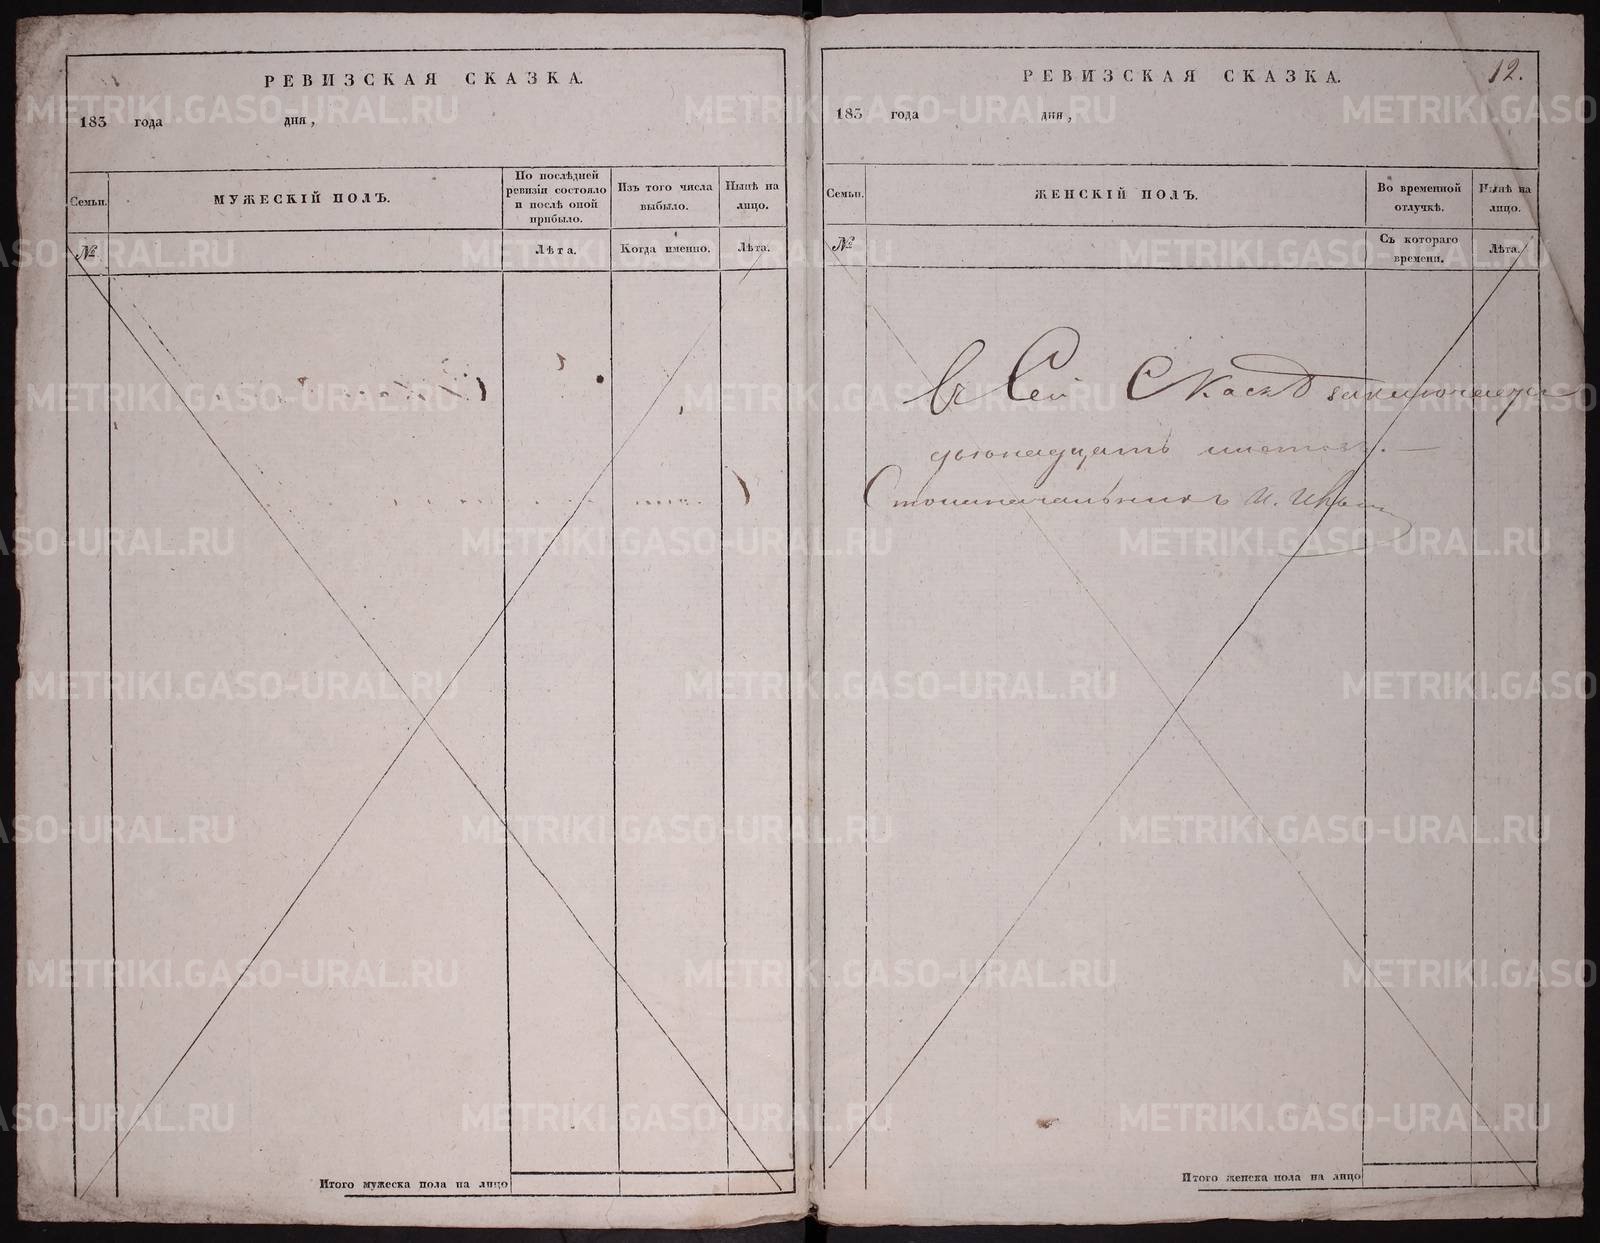 РЕВИЗСКАЯ СКАЗКА.
183 года дня,
Семьи. МУЖЕСКІЙ ПОЛЪ. По послѣдней ревизіи состояло и послѣ оной прибыло. Изъ того числа выбыло. Нынѣ на лицо.
№ Лѣта. Когда именно. Лѣта.
Итого мужеска пола на лицо
12.
РЕВИЗСКАЯ СКАЗКА.
183 года дня,
Семьи. ЖЕНСКІЙ ПОЛЪ. Во временной отлучкѣ. Нынѣ на лицо.
№ Съ котораго времени. Лѣта.
въ Сей Скаскѣ заключается
двенадцать листовъ. —
Столоначальникъ И.
Итого женска пола на лицо
METRIKI.GASO-URAL.RU